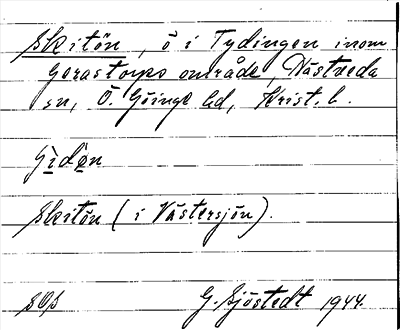 Skitön, ö i Tydingen inom
Gerastorps område, Nästveda
sn, Ö. Göinge hd, Krist. l.
Gidön
Skitön (i Västersjön).
SOS G. Sjöstedt 1944.